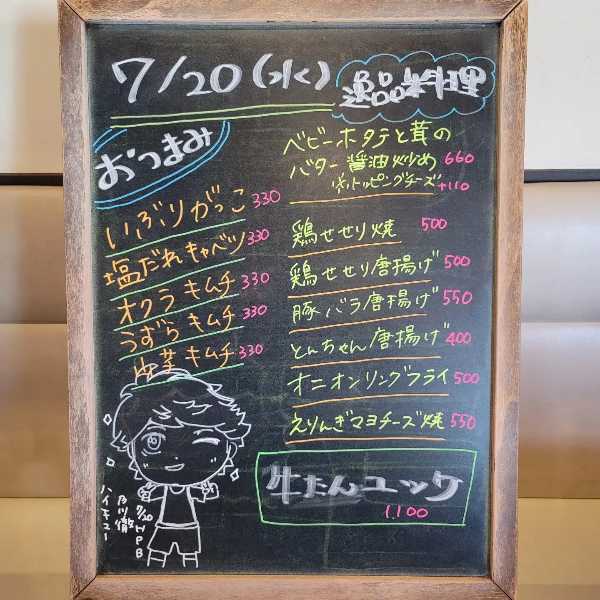 7/20(水)
逸品料理
おつまみ
いぶりがっこ 330
塩だれキャベツ 330
オクラキムチ 330
うずらキムチ 330
山芋キムチ 330
ベビーホタテと茸の
バター醤油炒め 660
※トッピングチーズ +110
鶏せせり焼 500
鶏せせり唐揚げ 500
豚バラ唐揚げ 550
とんちゃん唐揚げ 400
オニオンリングフライ 500
えりんぎマヨチーズ焼 550
牛たんユッケ
1,100
7/20 HPB
及川徹
ハイキュー